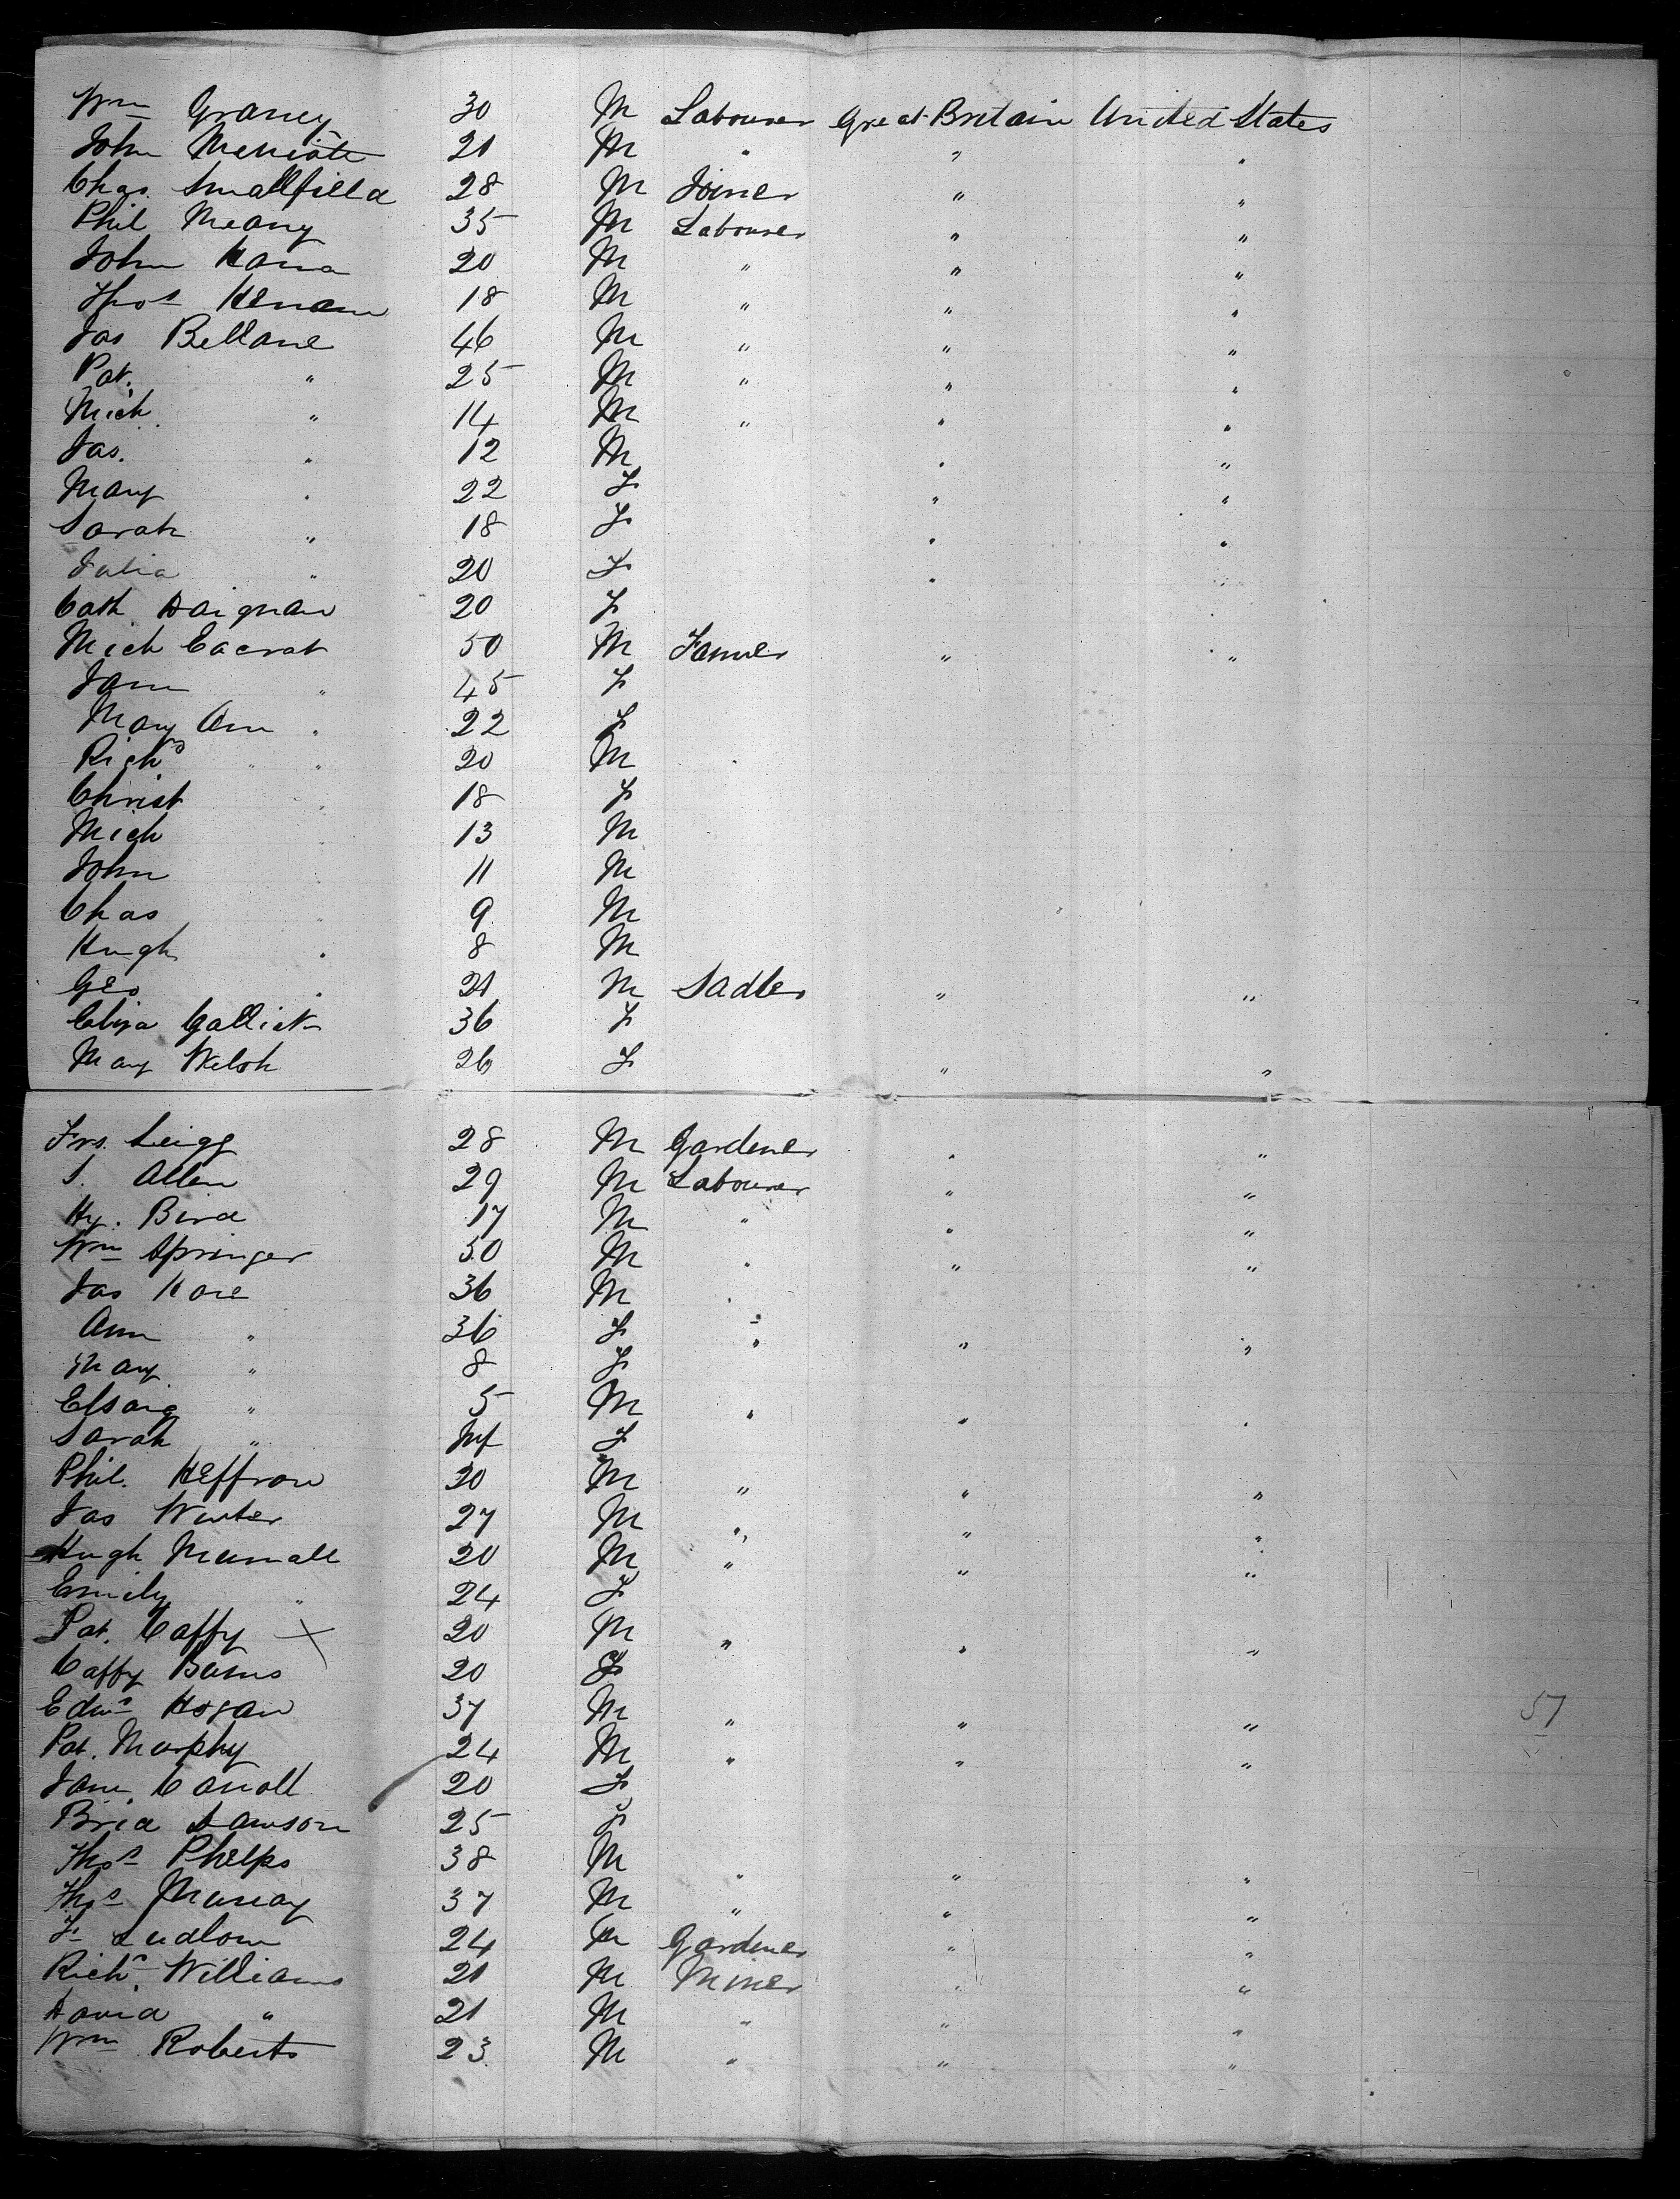 Wm Graney 30 M Labourer Great Britain United States
John 21 M " " "
Chas. Smallfield 28 M Joiner " "
Phil Meany 35 M Labourer " "
John Hana 20 M " " "
Thos 18 M " " "
Jas Bellane 46 M " " "
Pat. " 25 M " " "
Mich. " 14 M " " "
Jas. " 12 M " "
Mary " 22 F " "
Sarah " 18 F " "
Julia " 20 F " "
Cath. Daignan 20 F
Mich 50 M Farmer " "
Jane " 45 F
Mary Ann " 22 F
Richd " 20 M
Christ " 18 F
Mich " 13 M
John " 11 M
Chas " 9 M
Hugh " 8 M
Geo " 21 M Sadler " "
Eliza 36 F
Mary Welsh 26 F " "
Frs. Leigg 28 M Gardener " "
S. Allen 29 M Labourer " "
Hy. Bird 17 M " " "
Wm Springer 50 M " " "
Jas Hare 36 M "
Ann " 36 F " " "
Mary " 8 F
" 5 M " " "
Sarah " Inf F
Phil. Heffron 20 M " " "
Jas Winter 27 M " " "
Hugh 20 M " " "
Emily " 24 F
Pat. Caffy X 20 M " " "
Caffy Burns 20 F
Edwd Hogan 37 M " " " 57
Pat. Murphy 24 M " " "
Jane Carroll 20 F
Brid Dawson 25 F
Thos Phelps 38 M " " "
Thos Murray 37 M " " "
F Ludlow 24 M Gardener " "
Richd Williams 21 M Miner " "
David " 21 M " " "
Wm Roberts 23 M " " "